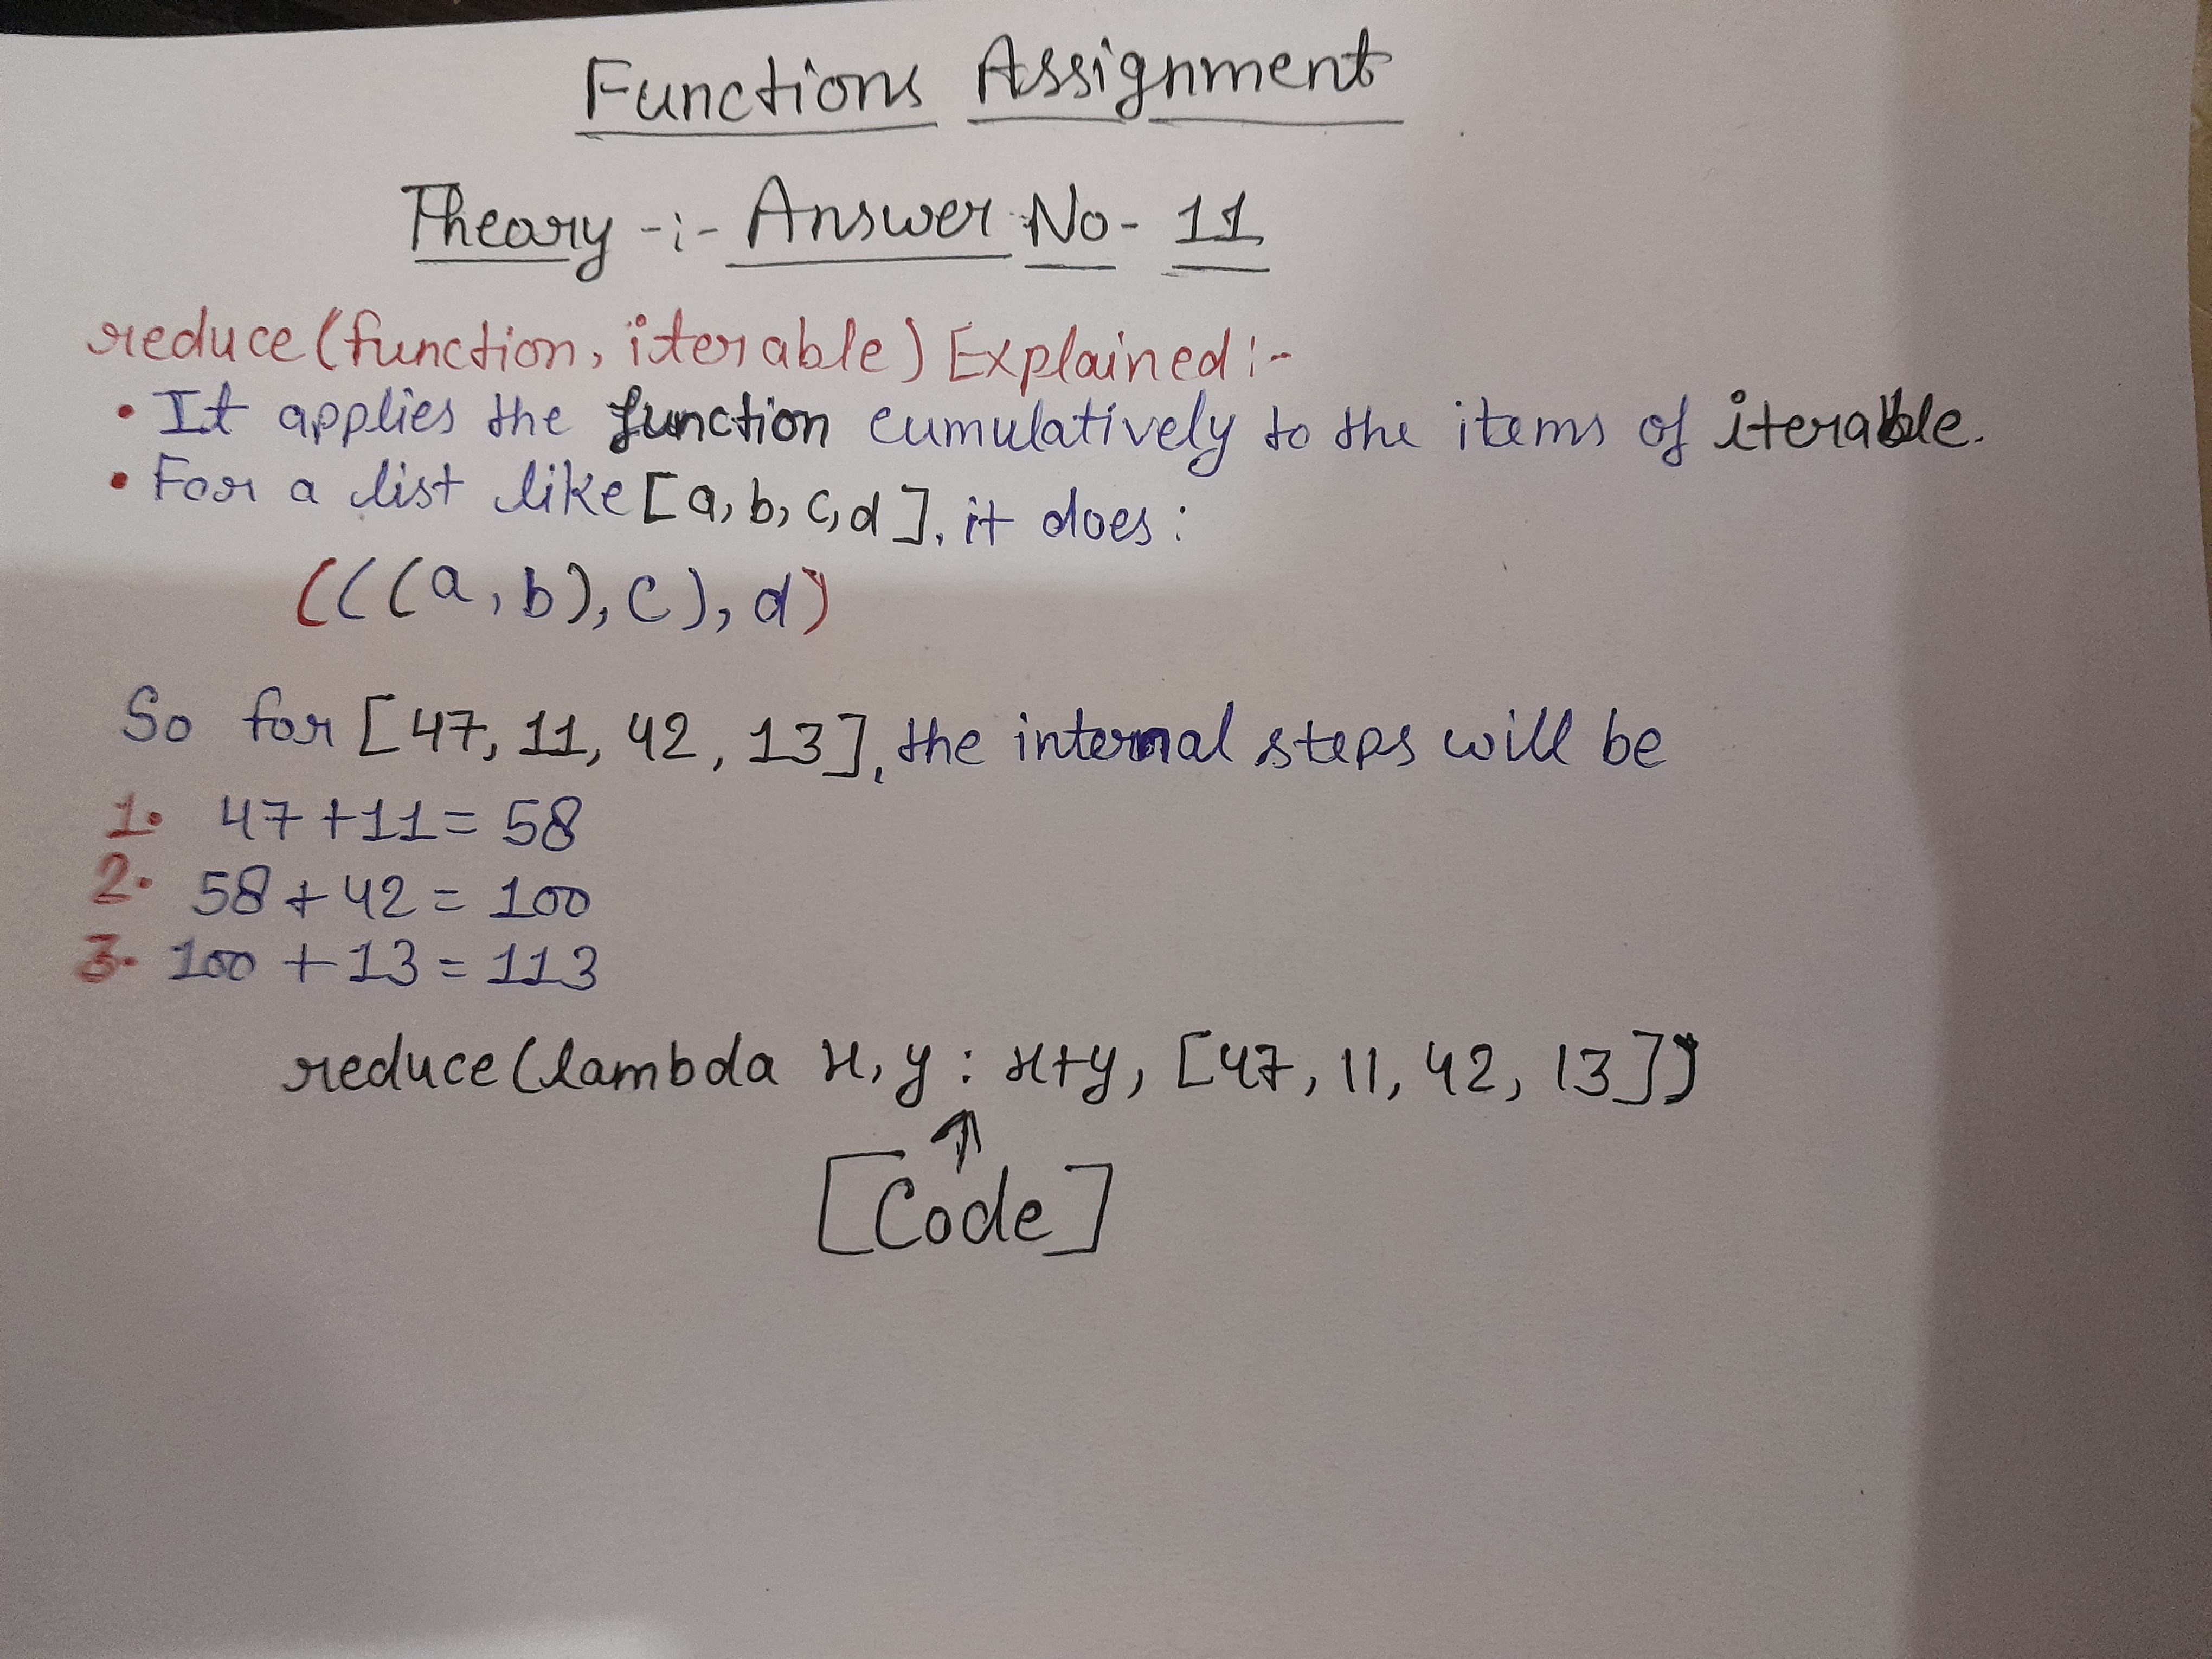 Functions Assignment
Theory -:- Answer No- 11
reduce(function, iterable) Explained :-
• It applies the function cumulatively to the items of iterable.
• For a list like [a, b, c, d], it does :
(((a, b), c), d)
So for [47, 11, 42, 13], the internal steps will be
1. 47 + 11 = 58
2. 58 + 42 = 100
3. 100 + 13 = 113
reduce(lambda x, y : x+y, [47, 11, 42, 13])
↑
[Code]